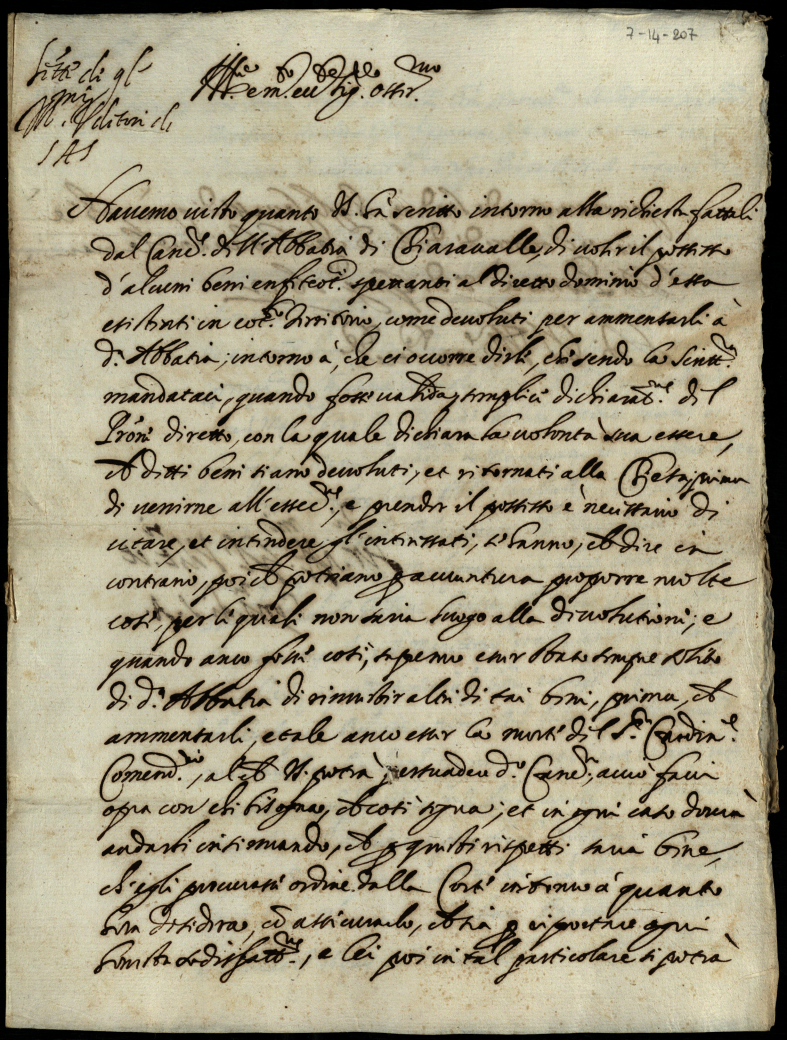 7-14-207
di gl'
Auditori di
SAS
Havemo visto quanto V.S. ha scritto intorno alla richiesta fattali
dal Canc.re dell'Abbatia di Chiaravalle, di voler il possesso
d'alcuni beni enfiteot.i spettanti al diretto dominio d'essa
esistenti in cot.o Territorio, come devoluti per ammentarli à
d.a Abbatia; intorno à, che ci occorre dirli, che sendo la Scritt.ra
mandataci, quando fosse valida, semplice dichiarat.ne del
Prōne diretto, con la quale dichiara la volontà sua essere,
ch ditti beni siano devoluti, et ritornati alla Chiesa, prima
di venirne all'essec.ne, e prender il possesso è necessario di
citare, et intendere, gl'intressati, s'hanno, ch dire in
contrario, poi ch potriano p avventura proporre molte
cose, per li quali non saria luogo alla devolutione; e
quando anco fosse così, sapemo esser stato sempre solito
di d.a Abbatia di rinvestir altri di tai beni, prima, ch
ammentarli, e tale anco esser la morte del S.r Cardin.l
Comend.rio, al ch V.S. potrà persuader d.o Canc.re, acciò facci
opra con chi bisogna, ch così segua; et in ogni caso dovrà
andarli intimando, ch p questi rispetti saria bene,
ch'egli procurasse ordine dalla Corte intorno à quanto
hora desidera, ed assicurarlo, ch sia p rispettare ogni
honesta sodisfatt.ne, e lei poi in tal particolare si potrà